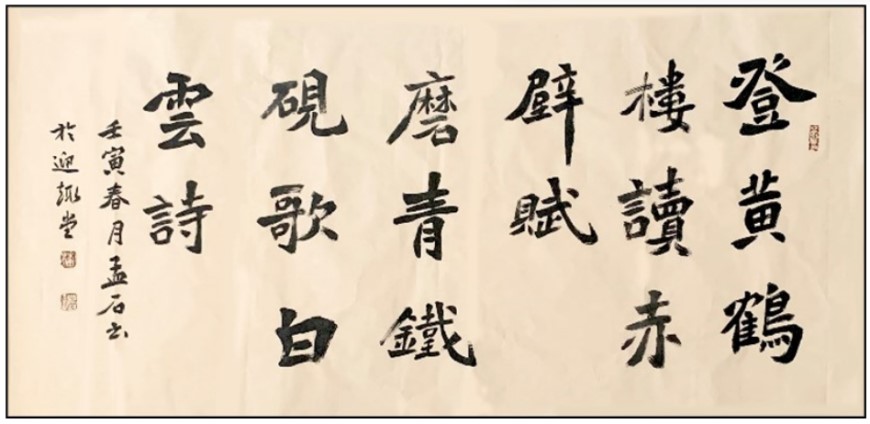 登黄鶴
樓讀赤
壁賦
磨青鐵
硯歌白
雲詩
壬寅春月孟石书
於迎趣堂